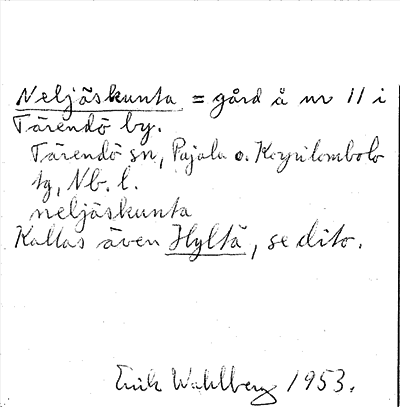 Neljäskunta = gård å nr 11 i
Tärendö by.
Tärendö sn, Pajala o. Korpilombolo
tg, Nb. l.
neljäskunta
Kallas även Hyltä, se dito.
Erik Wahlberg 1953.